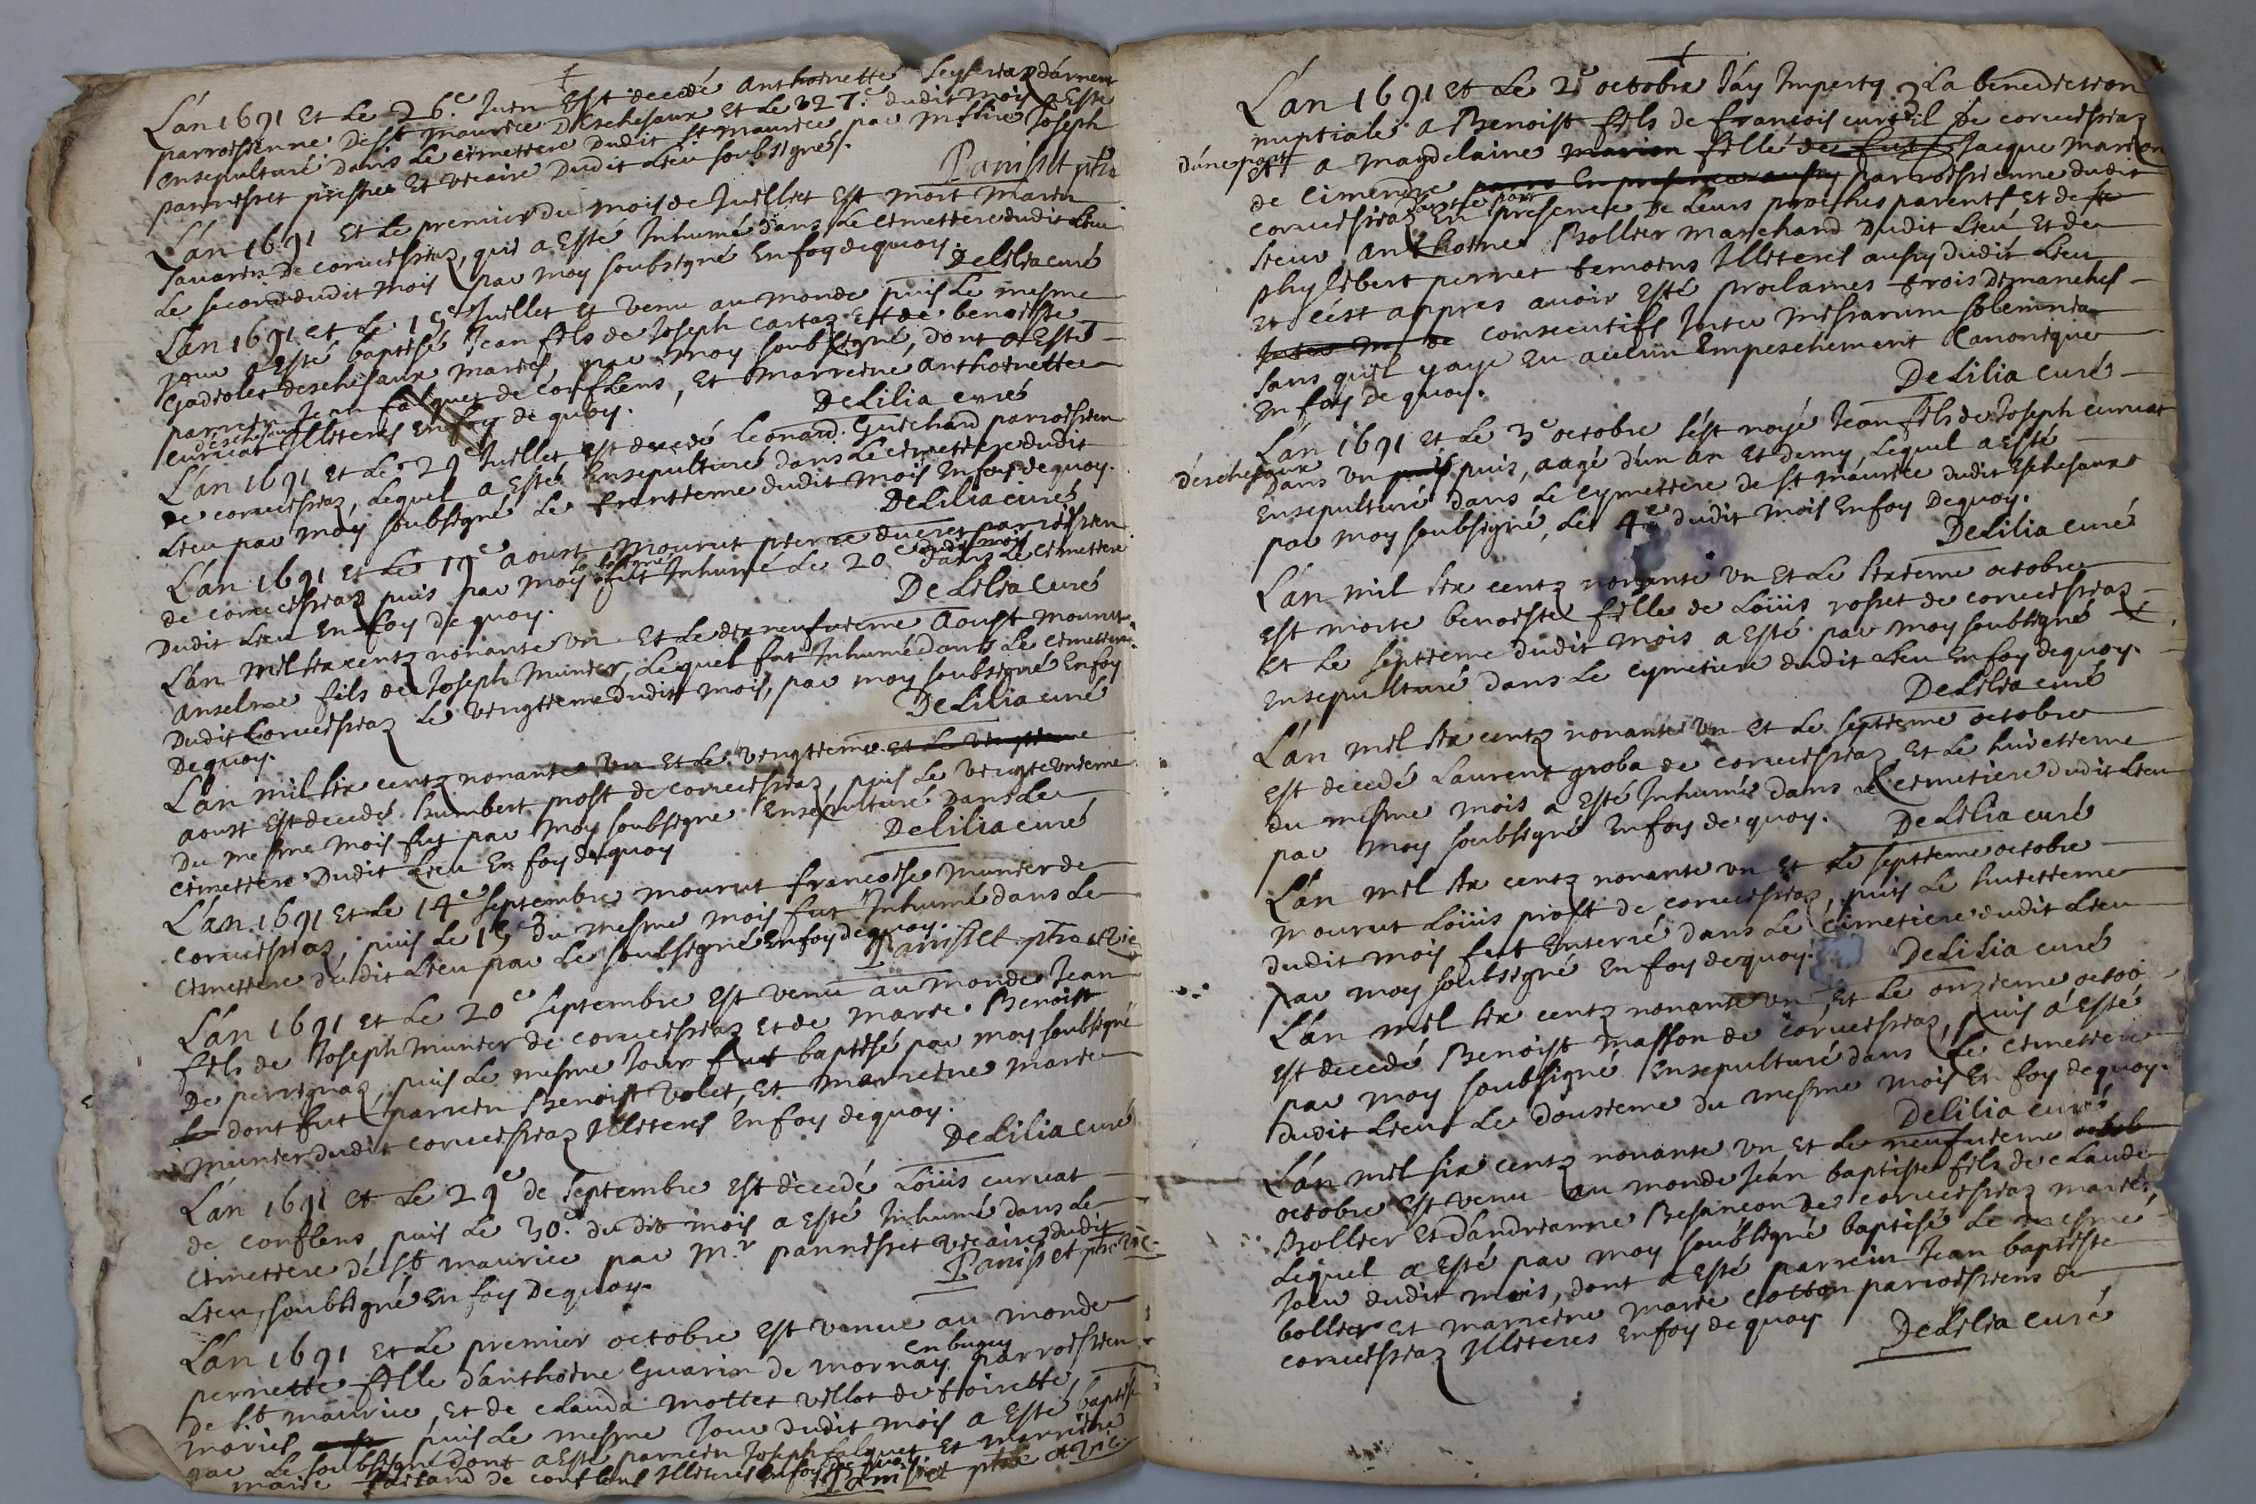 L'an 1691 et le 26.e Juin est decedé Anthoinette
parroissienne de St maurice deschesaux et le 27.e dudit mois a esté
ensepulturé dans le cimettiere dudit St maurice par messire Joseph
pannisset prestre et vicaire dudit lieu soubsigné.
Panisset ptre
L'an 1691 et le premier du mois de Juillet est mort marin
sauarin de corueissiaz, qui a esté Inhumé dans le cimettiere dudit lieu
le second dudit mois par moy soubsigné En foy dequoy.
DeLilia curé
L'an 1691 et le Juillet et venu au monde puis le mesme
jour a esté baptisé Jean fils de Joseph cartaz et de benoiste
deschesaux mariés par moy soubsigné, dont a esté
parrein Jean falquet de conflens, et marreine anthoinette
deschesaux
curuat Illiteres En foy de quoy.
DeLilia curé
L'an 1691 et le 29e Juillet est decedé leonard Guichard parroissien
de corueissiaz, lequel a esté Ensepulturé dans le cimettiere dudit
lieu par moy soubsigné le trentieme dudit mois En foy dequoy.
DeLilia curé
L'an 1691 et le 19e aoust mourut pierre parroissien
de corueissiaz puis par moy fut Inhumé le 20e dudit mois dans le cimettiere
dudit lieu En foy de quoy.
DeLilia curé
L'an mil six centz nonante un et le dixneufuieme aoust mourut
anselme fils de Joseph munier, lequel fut Inhumé dans le cimettiere
dudit Corueissiaz le vingtieme dudit mois, par moy soubsigné En foy
Dequoy.
DeLilia curé
L'an mil six centz nonante un et le vingtieme et le vingtieme
aoust est decedé humbert prost de corueissiaz puis le vingtunieme
du mesme mois fut par moy soubsigné Ensepulturé dans le
cimettiere dudit lieu En foy dequoy
DeLilia curé
L'an 1691 et le 14e septembre mourut francoise munier de
corueissiaz, puis le 15e du mesme mois fut Inhumé dans le
cimettiere dudit lieu par le soubsigné En foy dequoy.
Panisset ptre et vic
L'an 1691 et le 20e septembre est venu au monde Jean
fils de Joseph munier de corueissiaz et de marie Benoist
de perrignaz, puis le mesme Jour fut baptisé par moy soubsigné
dont fut parrein Benoist volet, et marreine marie
munier dudit corueissiaz Illiteres En foy dequoy.
DeLilia curé
L'an 1691 et le 29e de septembre est decedé Loüis curuat
de conflens puis le 30e. dudit mois a esté Inhumé dans le
cimettiere de St maurice par m.r pannisset vicaire dudit
lieu, soubsigné En foy Dequoy.
Panisset ptre vic.
L'an 1691 et le premier octobre est venue au monde
pernette fille d'anthoine Guarin de mornay en bugey parroissien
de St maurice, et de clauda mottet villot de thoirette
mariés puis le mesme Jour dudit mois a esté baptisé
par le soubsigné dont a esté parrein Joseph falquet et marreine
marie de conflens Illiteres En foy de quoy
Panisset ptre et vic.
L'an 1691 et le 2e octobre J'ay Imperty La benediction
nuptiale a Benoist fils de francois curtil de corueissiaz
d'une part
et a magdelaine marion fille de feu Jacque marion
de cimendre En presence parroissienne dudit
corueissiaz d'autre part En presence de leurs proches parents et de
sieur anthoine Bollier marchand dudit lieu et de
phylibert pernet temoins Illiteres aussy dudit lieu
et c'est appres auoir esté proclames trois dimanches
consecutifs Inter missarum solemnia
sans qu'il y aye eu aucun Empeschement Canonique
En foy de quoy.
DeLilia curé
L'an 1691 et le 3e octobre s'est noyé Jean fils de Joseph curuat
deschesaux
dans un puis puis, aagé d'un an et demy, lequel a esté
Ensepulturé dans le cymettiere de St maurice dudit Eschesaux
par moy soubsigné, le 4e dudit mois En foy Dequoy.
DeLilia curé
L'an mil six centz nonante un et le sixieme octobre
est morte benoiste fille de Loüis rosset de corueissiaz
et le septieme dudit mois a esté par moy soubsigné
Ensepulturé dans le cymetiere dudit lieu En foy dequoy.
DeLilia curé
L'an mil six centz nonante un et le septieme octobre
est decedé Laurent groba de corueissiaz et le huictieme
du mesme mois a esté Inhumé dans le cimetiere dudit lieu
par moy soubsigné En foy de quoy.
DeLilia curé
L'an mil six centz nonante un et le septieme octobre
mourut Loüis prost de corueissiaz, puis le huictieme
dudit mois fut Enterré dans le cimetiere dudit lieu
par moy soubsigné En foy dequoy.
DeLilia curé
L'an mil six centz nonante un, et le onzieme octob
est decedé Benoist masson de corueissiaz, puis a esté
par moy soubsigné Ensepulturé dans le cimetiere
dudit lieu le dousieme du mesme mois En foy dequoy.
DeLilia curé
L'an mil six centz nonante un et le neufuieme octob
octobre est venu au monde Jean baptiste fils de claude
Bollier et d'andrianne Besancon de corueissiaz mariés,
lequel a esté par moy soubsigné baptisé le mesme
Jour dudit mois, dont a esté parrein Jean baptiste
bollier et marreine marie cotton parroissiens de
corueissiaz Illiteres En foy de quoy
DeLilia curé